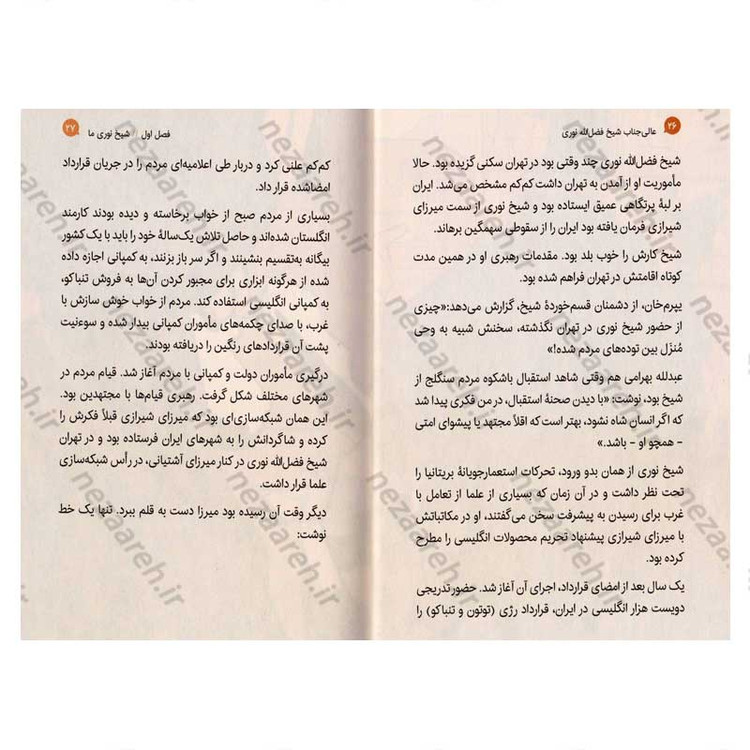 ۲۶ عالی‌جناب شیخ فضل‌الله نوری
شیخ فضل‌الله نوری چند وقتی بود در تهران سکنی گزیده بود. حالا
مأموریت او از آمدن به تهران داشت کم‌کم مشخص می‌شد. ایران
بر لبهٔ پرتگاهی عمیق ایستاده بود و شیخ نوری از سمت میرزای
شیرازی فرمان یافته بود ایران را از سقوطی سهمگین برهاند.
شیخ کارش را خوب بلد بود. مقدمات رهبری او در همین مدت
کوتاه اقامتش در تهران فراهم شده بود.
یپرم‌خان، از دشمنان قسم‌خوردهٔ شیخ، گزارش می‌دهد:«چیزی
از حضور شیخ نوری در تهران نگذشته، سخنش شبیه به وحی
مُنزَل بین توده‌های مردم شده!»
عبدلله بهرامی هم وقتی شاهد استقبال باشکوه مردم سنگلج از
شیخ بود، نوشت: «با دیدن صحنهٔ استقبال، در من فکری پیدا شد
که اگر انسان شاه نشود، بهتر است که اقلاً مجتهد یا پیشوای امتی
- همچو او - باشد.»
شیخ نوری از همان بدو ورود، تحرکات استعمارجویانهٔ بریتانیا را
تحت نظر داشت و در آن زمان که بسیاری از علما از تعامل با
غرب برای رسیدن به پیشرفت سخن می‌گفتند، او در مکاتباتش
با میرزای شیرازی پیشنهاد تحریم محصولات انگلیسی را مطرح
کرده بود.
یک سال بعد از امضای قرارداد، اجرای آن آغاز شد. حضور تدریجی
دویست هزار انگلیسی در ایران، قرارداد رژی (توتون و تنباکو) را
فصل اول / شیخ نوری ما ۲۷
کم‌کم علنی کرد و دربار طی اعلامیه‌ای مردم را در جریان قرارداد
امضاشده قرار داد.
بسیاری از مردم صبح از خواب برخاسته و دیده بودند کارمند
انگلستان شده‌اند و حاصل تلاش یک‌سالهٔ خود را باید با یک کشور
بیگانه به‌تقسیم بنشینند و اگر سر باز بزنند، به کمپانی اجازه داده
شده از هرگونه ابزاری برای مجبور کردن آن‌ها به فروش تنباکو،
به کمپانی انگلیسی استفاده کند. مردم از خواب خوش سازش با
غرب، با صدای چکمه‌های مأموران کمپانی بیدار شده و سوءنیت
پشت آن قراردادهای رنگین را دریافته بودند.
درگیری مأموران دولت و کمپانی با مردم آغاز شد. قیام مردم در
شهرهای مختلف شکل گرفت. رهبری قیام‌ها با مجتهدین بود.
این همان شبکه‌سازی‌ای بود که میرزای شیرازی قبلاً فکرش را
کرده و شاگردانش را به شهرهای ایران فرستاده بود و در تهران
شیخ فضل‌الله نوری در کنار میرزای آشتیانی، در رأس شبکه‌سازی
علما قرار داشت.
دیگر وقت آن رسیده بود میرزا دست به قلم ببرد. تنها یک خط
نوشت:
nezaareh.ir